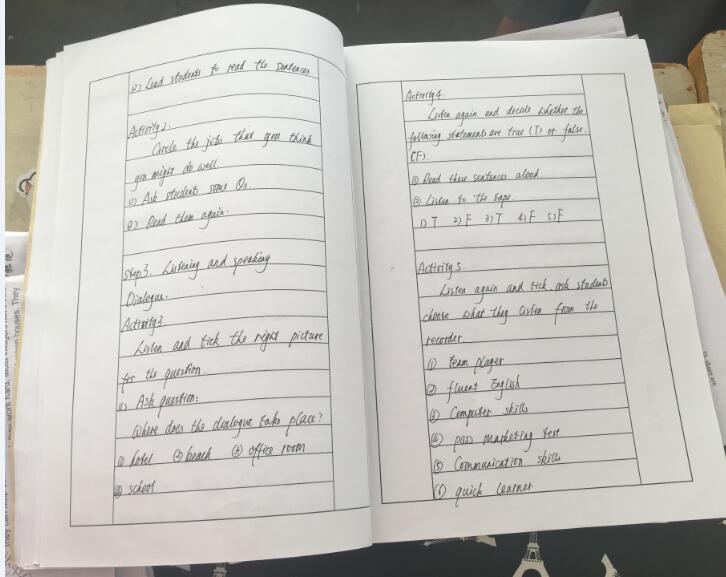 (2) Lead students to read the sentences
Activity 2.
Circle the jobs that you think
you might do well
(1) Ask students some Qs.
(2) Read them again.
Step3. Listening and speaking
Dialogue.
Activity3
Listen and tick the right picture
for the question.
(1) Ask question:
Where does the dialogue take place?
① hotel ② beach ③ office room
④ school
Activity4.
Listen again and decide whether the
following statements are true (T) or false.
(F).
① Read these sentences aloud
② Listen to the tape.
1) T 2) F 3) T 4) F 5) F
Activity 5
Listen again and tick ask students
choose what they listen from the
recorder.
① team player
② fluent English
③ Computer skills
④ pass marketing test
⑤ Communication skills
⑥ quick learner